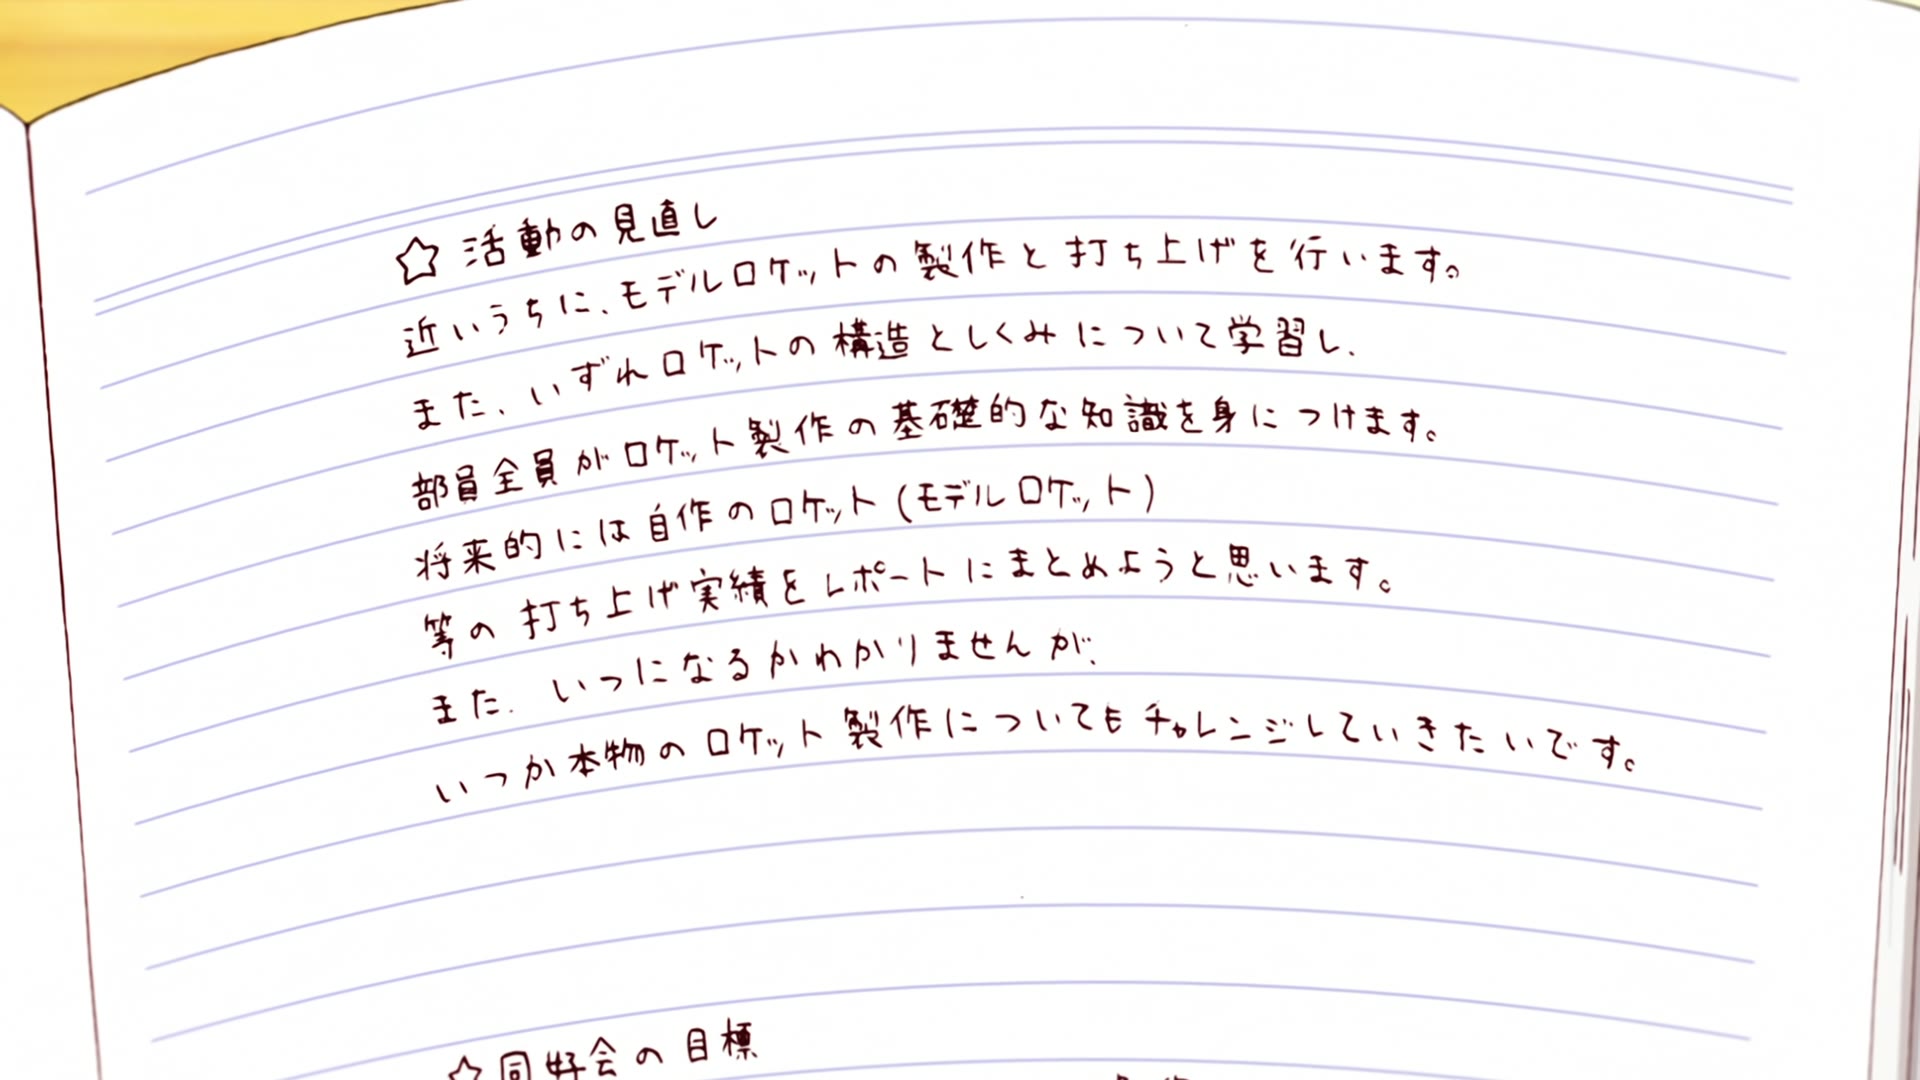 ☆ 活動の見直し
近いうちに、モデルロケットの製作と打ち上げを行います。
また、いずれロケットの構造としくみについて学習し、
部員全員がロケット製作の基礎的な知識を身につけます。
将来的には自作のロケット(モデルロケット)
等の打ち上げ実績をレポートにまとめようと思います。
また、いつになるかわかりませんが、
いつか本物のロケット製作についてもチャレンジしていきたいです。
☆ 同好会の目標